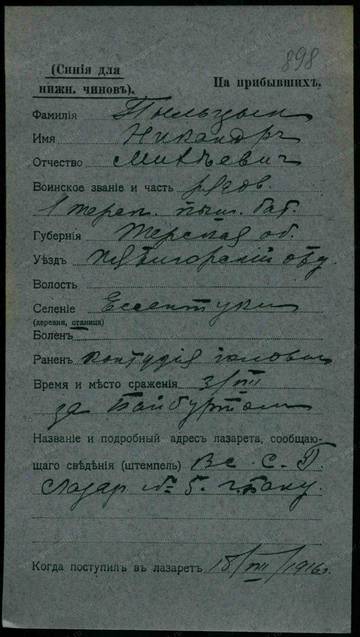 898
(Синія для
нижн. чиновъ).
На прибывшихъ.
Фамилія Пыльцын
Имя Никандръ
Отчество Матвѣевич
Воинское званіе и часть рядов.
1 терск. пласт. бат.
Губернія Терская об.
Уѣздъ Пятигорскій отд
Волость
Селеніе Ессентуки
(деревня, станица)
Боленъ
Раненъ контузія головы
Время и мѣсто сраженія 3/VII
за Байбуртом
Названіе и подробный адресъ лазарета, сообщаю-
щаго свѣдѣнія (штемпель) Вс. С. Г.
Лазар № 5. г. Баку.
Когда поступилъ въ лазаретъ 18/VII/1916г.